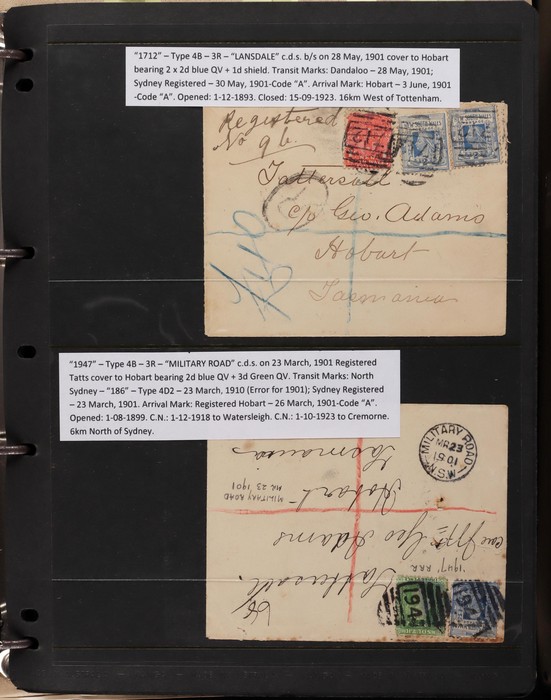 "1712" – Type 4B – 3R – "LANSDALE" c.d.s. b/s on 28 May, 1901 cover to Hobart
bearing 2 x 2d blue QV + 1d shield. Transit Marks: Dandaloo – 28 May, 1901;
Sydney Registered – 30 May, 1901-Code "A". Arrival Mark: Hobart – 3 June, 1901
-Code "A". Opened: 1-12-1893. Closed: 15-09-1923. 16km West of Tottenham.
Registered
No 96.
1712
Tattersall
c/o Geo. Adams
Hobart
Tasmania
R
"1947" – Type 4B – 3R – "MILITARY ROAD" c.d.s. on 23 March, 1901 Registered
Tatts cover to Hobart bearing 2d blue QV + 3d Green QV. Transit Marks: North
Sydney – "186" – Type 4D2 – 23 March, 1910 (Error for 1901); Sydney Registered
– 23 March, 1901. Arrival Mark: Registered Hobart – 26 March, 1901-Code "A".
Opened: 1-08-1899. C.N.: 1-12-1918 to Watersleigh. C.N.: 1-10-1923 to Cremorne.
6km North of Sydney.
MILITARY ROAD
MR 23
1901
N.S.W
Tasmania
MILITARY ROAD
MR 23 1901
Hobart
Geo Adams
'1947' RRR
Tattersall
194
194